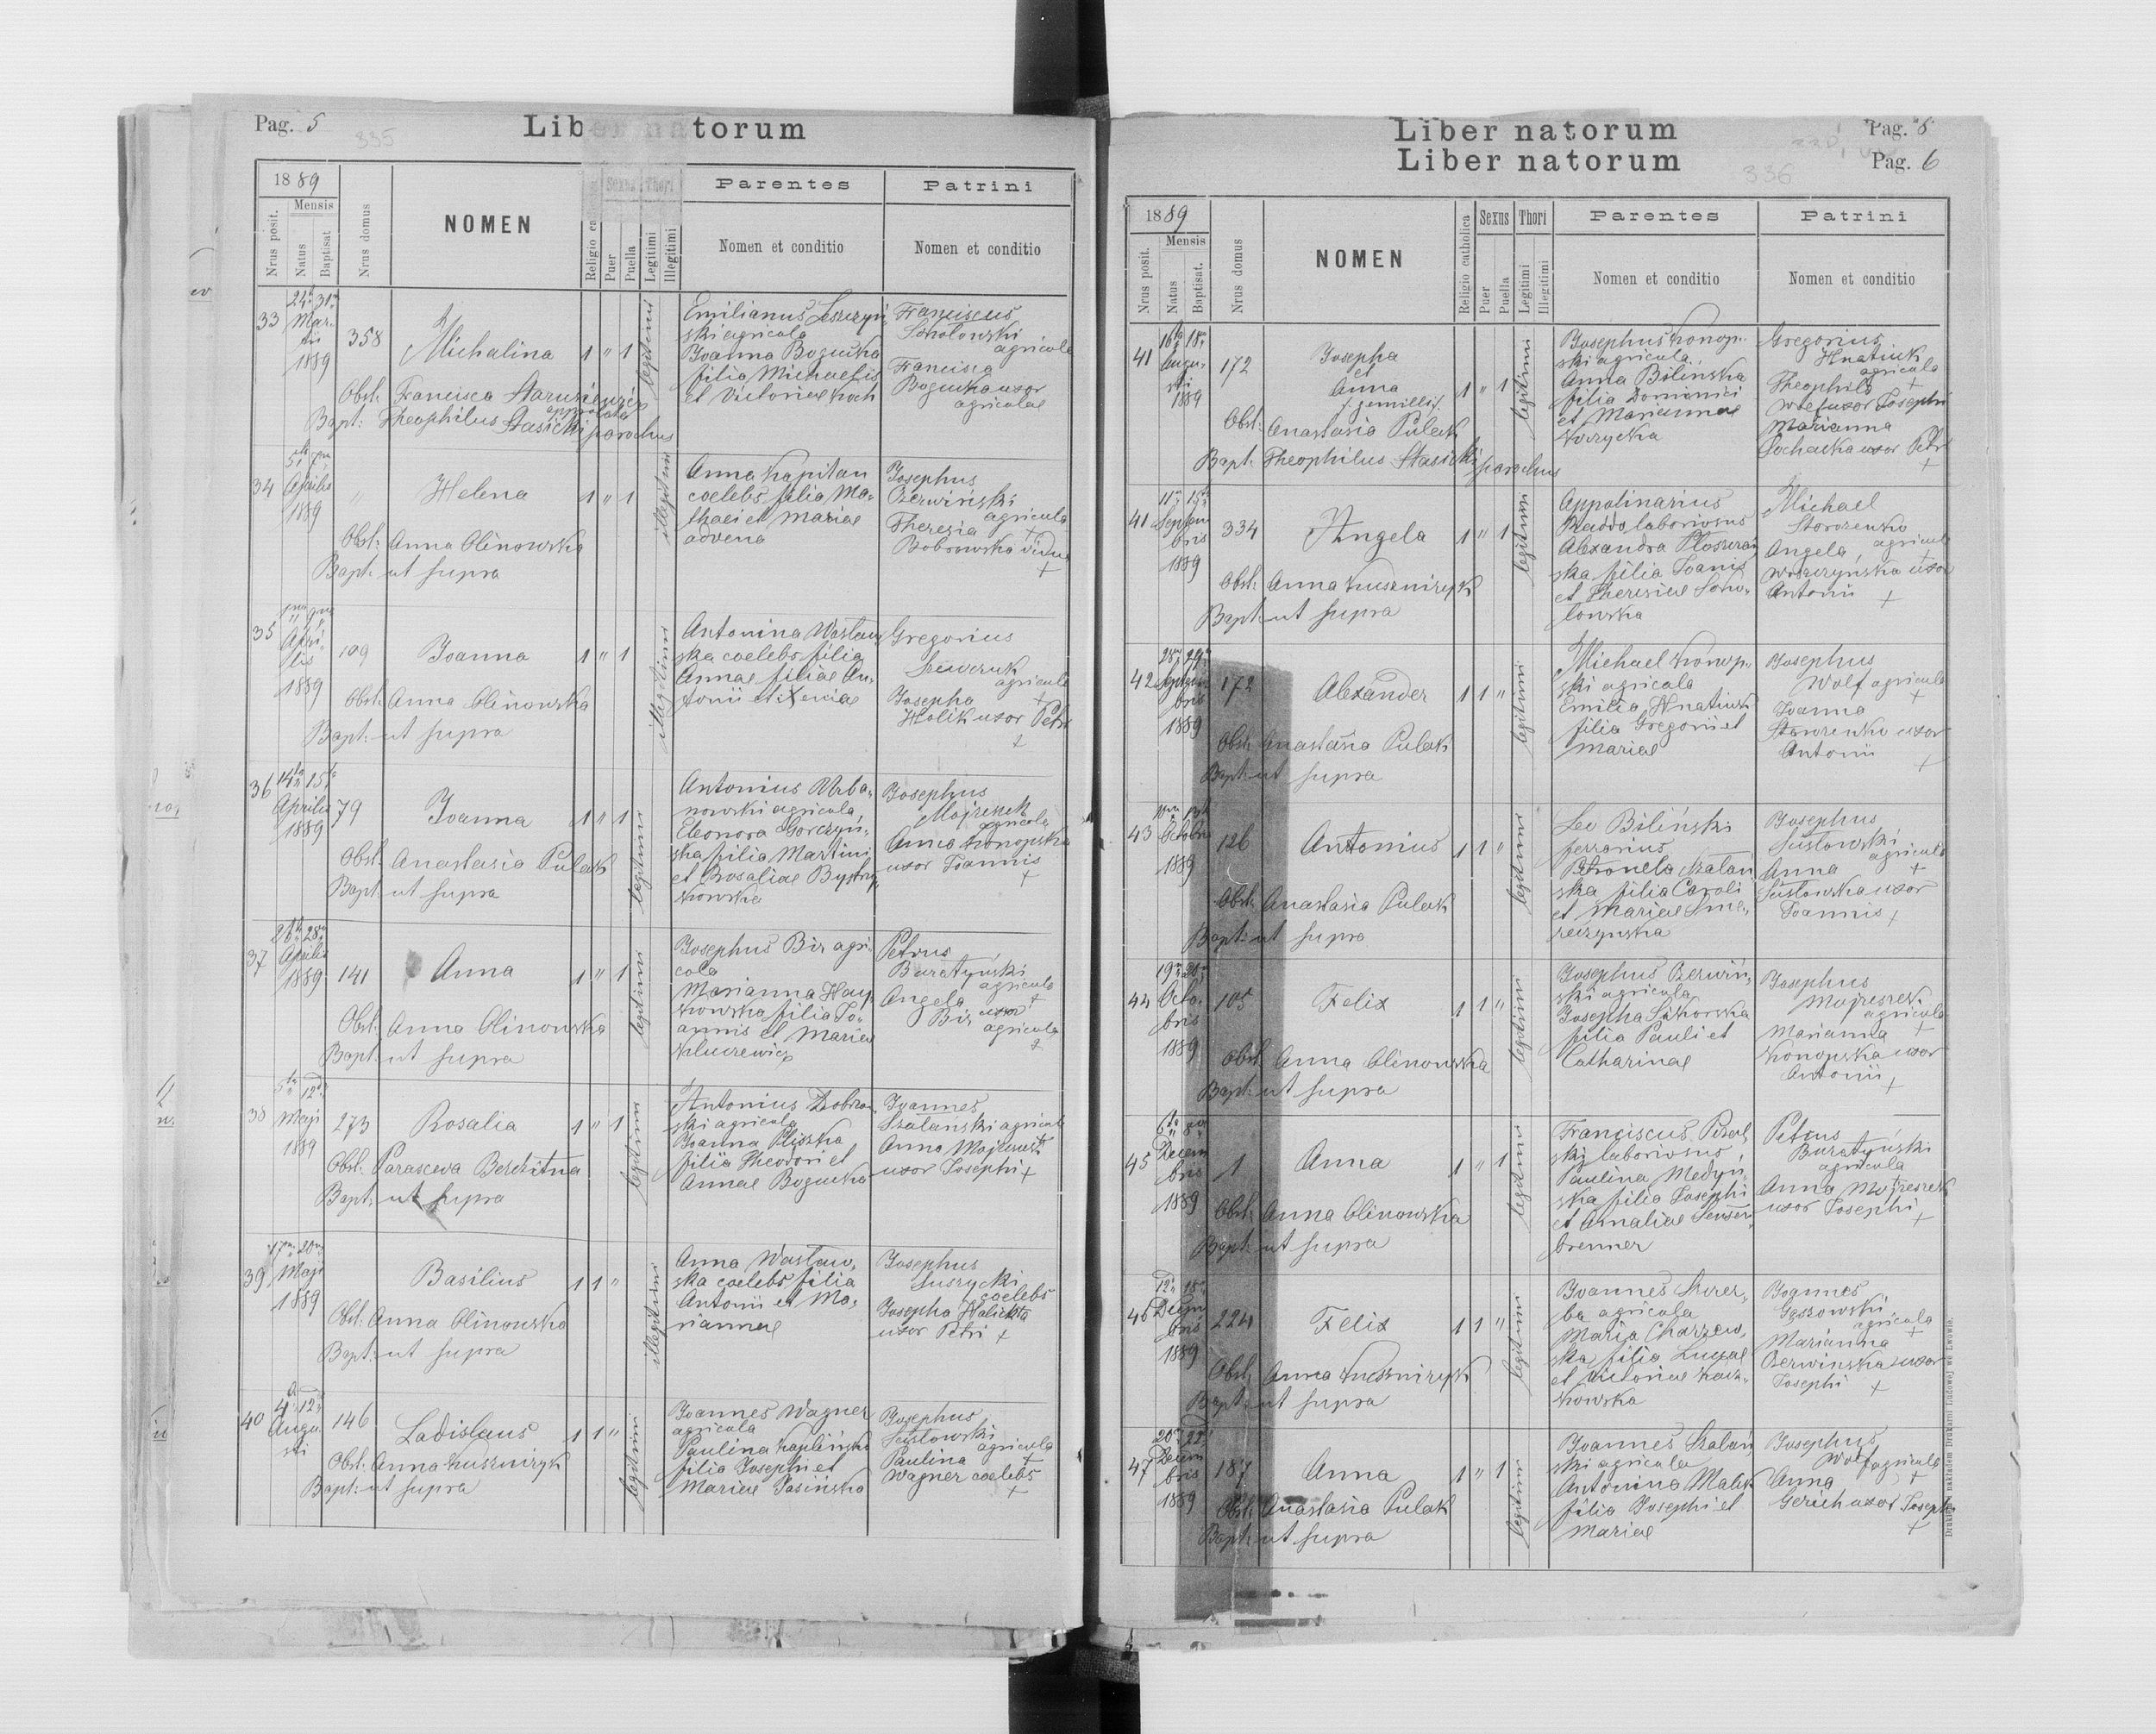 Pag. 5
335
Liber natorum
1889
Nrus posit.
Mensis
Natus
Baptisat
Nrus domus
NOMEN
Sexus
Thori
Puer
Puella
Legitimi
Illegitimi
Parentes
Nomen et conditio
Patrini
Nomen et conditio
33
24 31
Mar-
tii
1889
358
Michalina
1 " 1
legitimi
Emilianus
ski agricola
Joanna Bogucka
filia Michaelis
et Victoriae Koch
Franciscus
Sokolowski
agricola
Francisca
Bogucka uxor
agricolae
Obst: Francisca
approbata
Bapt: Theophilus Stasicki parochus
34
5 7
Aprilis
1889
"
Helena
1 " 1
illegitimi
Anna Kapitan
coelebs filia Ma-
thaei et Mariae
advena
Josephus
Czerwiński
agricola
Theresia +
Bobrowska vidua
+
Obst: Anna Olinowska
Bapt: ut supra
35
Apri-
lis
1889
109
Joanna
1 " 1
illegitimi
Antonina Wasław-
ska coelebs filia
Annae filiae An-
tonii et Xeniae
Gregorius
Szewczuk
agricola
Josepha +
Halik uxor Petri
Obst: Anna Olinowska
Bapt: ut supra
36
14 15
Aprilis
1889
79
Joanna
1 " 1
legitimi
Antonius Urba-
nowski agricola
Eleonora Gorczyń-
ska filia Martini
et Rosaliae Bystry-
kowska
Josephus
Majeszek
agricola
Anna Konopska
uxor Joannis
+
Obst: Anastasia Pulak
Bapt: ut supra
37
26 28
Aprilis
1889
141
Anna
1 " 1
legitimi
Josephus Bir agri-
cola
Marianna Hay-
kowska filia Jo-
annis et Mariae
Kluczewicz
Petrus
Buratyński
agricola
Angela +
Bir uxor
agricola
Obst: Anna Olinowska
Bapt: ut supra
38
5 12
Maji
1889
273
Rosalia
1 " 1
legitimi
Antonius Dobrzań-
ski agricola
Joanna Pliszka
filia Theodori et
Annae Bogucka
Joannes
Szalański agricola
Anna Majeszek
uxor Josephi +
Obst: Parascewa
Bapt: ut supra
39
17 20
Maji
1889
Basilius
1 1 "
illegitimi
Anna Wasław-
ska coelebs filia
Antonii et Ma-
riannae
Josephus
Suszycki
coelebs
Josepha Halicka
uxor Petri +
Obst: Anna Olinowska
Bapt: ut supra
40
4 12
Augu-
sti
146
Ladislaus
1 1 "
legitimi
Joannes Wagner
agricola
Paulina Kaplińska
filia Josephi et
Mariae Jasińska
Josephus
Sustowski
agricola
Paulina +
Wagner coelebs
+
Obst: Anna Kusznirzyk
Bapt: ut supra
Liber natorum
Pag. 8
Liber natorum
Pag. 6
336
1889
Nrus posit.
Mensis
Natus
Baptisat.
Nrus domus
NOMEN
Religio catholica
Sexus
Puer
Puella
Thori
Legitimi
Illegitimi
Parentes
Nomen et conditio
Patrini
Nomen et conditio
41
16 18
Augu-
sti
1889
172
Josepha
et
Anna
gemelli
1 " 1
legitimi
Josephus Konop-
ski agricola
Anna Bilińska
filia Dominici
et Mariannae
Gregorius
Hnatiuk
agricola
Theophila +
Wolf uxor Josephi
Marianna
Sochacka uxor Petri
+
Obst: Anastasia Pulak
Bapt: Theophilus Stasicki parochus
41
11 15
Septem-
bris
1889
334
Angela
1 " 1
legitimi
Appolinarius
laboriosus
Alexandra
ska filia Joanis
et Theresiae Soko-
lowska
Michael
Storozenko
agricola
Angela +
Woszczyńska uxor
Antonii +
Obst: Anna Kusznirzyk
Bapt: ut supra
42
28 29
Septem-
bris
1889
172
Alexander
1 1 "
legitimi
Michael Konop-
ski agricola
Emilia Hnatiuk
filia Gregorii et
Mariae
Josephus
Wolf agricola
+
Joanna
uxor
Antonii
+
Obst: Anastasia Pulak
Bapt: ut supra
43
Octobris
1889
126
Antonius
1 1 "
legitimi
Leo Biliński
ferrarius
Petronela Szalań-
ska filia Caroli
et Mariae Sme-
reczyńska
Josephus
Sustowski
agricola
Anna +
Sustowska uxor
Joannis +
Obst: Anastasia Pulak
Bapt: ut supra
44
19 20
Octo-
bris
1889
105
Felix
1 1 "
legitimi
Josephus Czerwiń-
ski agricola
Josepha Sikorska
filia Pauli et
Catharinae
Josephus
Majeszek
agricola
Marianna +
Konopska uxor
Antonii +
Obst: Anna Olinowska
Bapt: ut supra
45
6 8
Decem-
bris
1889
1
Anna
1 " 1
legitimi
Franciscus
ski laboriosus
Paulina Medyń-
ska filia Josephi
et Amaliae
brenner
Petrus
Buratyński
agricola
Anna Majeszek
uxor Josephi +
Obst: Anna Olinowska
Bapt: ut supra
46
12 15
Decem-
bris
1889
224
Felix
1 1 "
legitimi
Joannes Szczer-
ba agricola
Maria Charzew-
ska filia Lucae
et Victoriae
kowska
Joannes
agricola
Marianna +
Czerwińska uxor
Josephi +
Obst: Anna Kusznirzyk
Bapt: ut supra
47
20 22
Decem-
bris
1889
187
Anna
1 " 1
legitimi
Joannes Szalań-
ski agricola
Antonina Malek
filia Josephi et
Mariae
Josephus
Wolf agricola
Anna +
Gerich uxor Josephi
+
Obst: Anastasia Pulak
Bapt: ut supra
Drukiem i nakładem Drukarni Ludowej we Lwowie.